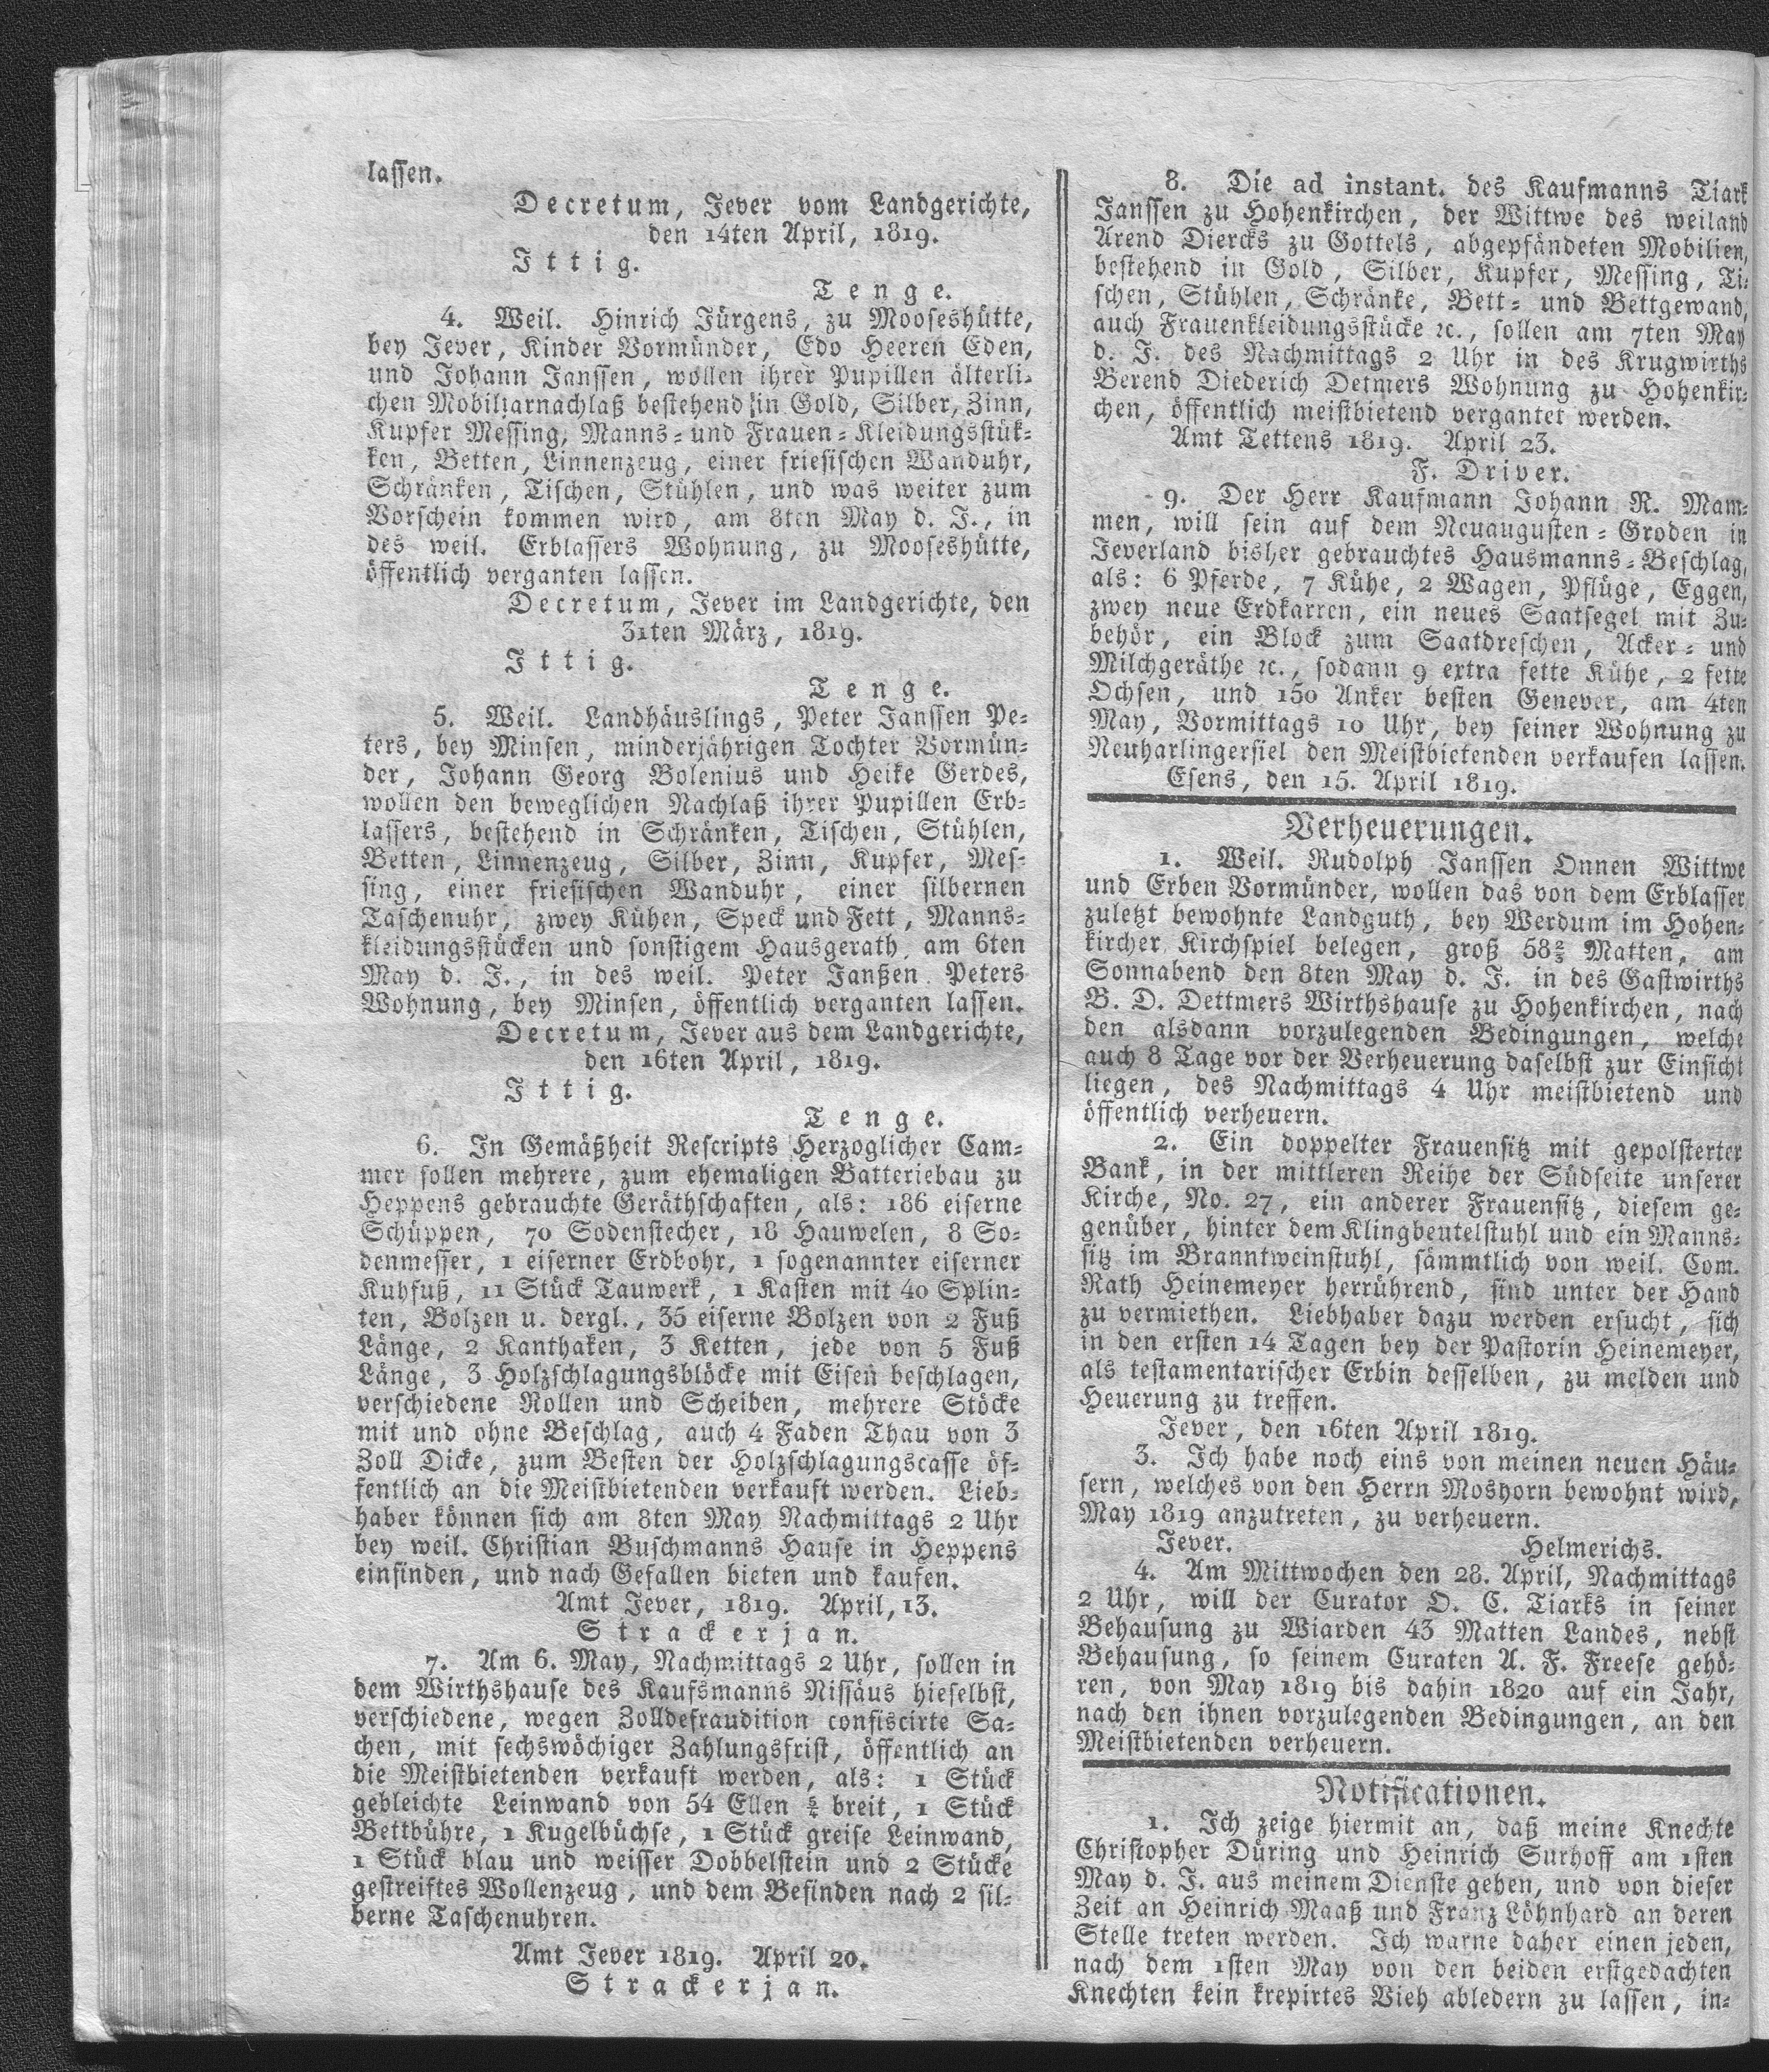 lassen.
Decretum, Jever vom Landgerichte,
den 14ten April, 1819.
Ittig.
Tenge.
4. Weil. Hinrich Jürgens, zu Mooseshütte,
bey Jever, Kinder Vormünder, Edo Heeren Eden,
und Johann Janssen, wollen ihrer Pupillen älterli-
chen Mobiliarnachlaß bestehend in Gold, Silber, Zinn,
Kupfer Messing, Manns- und Frauen-Kleidungsstük-
ken, Betten, Linnenzeug, einer friesischen Wanduhr,
Schränken, Tischen, Stühlen, und was weiter zum
Vorschein kommen wird, am 8ten May d. J., in
des weil. Erblassers Wohnung, zu Mooseshütte,
öffentlich verganten lassen.
Decretum, Jever im Landgerichte, den
31ten März, 1819.
Ittig.
Tenge.
5. Weil. Landhäuslings, Peter Janssen Pe-
ters, bey Minsen, minderjährigen Tochter Vormün-
der, Johann Georg Bolenius und Heike Gerdes,
wollen den beweglichen Nachlaß ihrer Pupillen Erb-
lassers, bestehend in Schränken, Tischen, Stühlen,
Betten, Linnenzeug, Silber, Zinn, Kupfer, Mes-
sing, einer friesischen Wanduhr, einer silbernen
Taschenuhr, zwey Kühen, Speck und Fett, Manns-
kleidungsstücken und sonstigem Hausgerath am 6ten
May d. J., in des weil. Peter Janßen Peters
Wohnung, bey Minsen, öffentlich verganten lassen.
Decretum, Jever aus dem Landgerichte,
den 16ten April, 1819.
Ittig.
Tenge.
6. In Gemäßheit Rescripts Herzoglicher Cam-
mer sollen mehrere, zum ehemaligen Batteriebau zu
Heppens gebrauchte Geräthschaften, als: 186 eiserne
Schüppen, 70 Sodenstecher, 18 Hauwelen, 8 So-
denmesser, 1 eiserner Erdbohr, 1 sogenannter eiserner
Kuhfuß, 11 Stück Tauwerk, 1 Kasten mit 40 Splin-
ten, Bolzen u. dergl., 35 eiserne Bolzen von 2 Fuß
Länge, 2 Kanthaken, 3 Ketten, jede von 5 Fuß
Länge, 3 Holzschlagungsblöcke mit Eisen beschlagen,
verschiedene Rollen und Scheiben, mehrere Stöcke
mit und ohne Beschlag, auch 4 Faden Thau von 3
Zoll Dicke, zum Besten der Holzschlagungscasse öf-
fentlich an die Meistbietenden verkauft werden. Lieb-
haber können sich am 8ten May Nachmittags 2 Uhr
bey weil. Christian Buschmanns Hause in Heppens
einfinden, und nach Gefallen bieten und kaufen.
Amt Jever, 1819. April, 13.
Strackerjan.
7. Am 6. May, Nachmittags 2 Uhr, sollen in
dem Wirthshause des Kaufsmanns Nissäus hieselbst,
verschiedene, wegen Zolldefraudition confiscirte Sa-
chen, mit sechswöchiger Zahlungsfrist, öffentlich an
die Meistbietenden verkauft werden, als: 1 Stück
gebleichte Leinwand von 54 Ellen 5/4 breit, 1 Stück
Bettbühre, 1 Kugelbüchse, 1 Stück greise Leinwand,
1 Stück blau und weisser Dobbelstein und 2 Stücke
gestreiftes Wollenzeug, und dem Befinden nach 2 sil-
berne Taschenuhren.
Amt Jever 1819. April 20.
Strackerjan.
8. Die ad instant. des Kaufmanns Tiark
Janssen zu Hohenkirchen, der Wittwe des weiland
Arend Diercks zu Gottels, abgepfändeten Mobilien,
bestehend in Gold, Silber, Kupfer, Messing, Ti-
schen, Stühlen, Schränke, Bett- und Bettgewand,
auch Frauenkleidungsstücke ꝛc., sollen am 7ten May
d. J. des Nachmittags 2 Uhr in des Krugwirths
Berend Diederich Detmers Wohnung zu Hohenkir-
chen, öffentlich meistbietend vergantet werden.
Amt Tettens 1819. April 23.
F. Driver.
9. Der Herr Kaufmann Johann R. Mam-
men, will sein auf dem Neuaugusten-Groden in
Jeverland bisher gebrauchtes Hausmanns-Beschlag,
als: 6 Pferde, 7 Kühe, 2 Wagen, Pflüge, Eggen,
zwey neue Erdkarren, ein neues Saatsegel mit Zu-
behör, ein Block zum Saatdreschen, Acker- und
Milchgeräthe ꝛc., sodann 9 extra fette Kühe, 2 fette
Ochsen, und 150 Anker besten Genever, am 4ten
May, Vormittags 10 Uhr, bey seiner Wohnung zu
Neuharlingersiel den Meistbietenden verkaufen lassen.
Esens, den 15. April 1819.
Verheuerungen.
1. Weil. Rudolph Janssen Onnen Wittwe
und Erben Vormünder, wollen das von dem Erblasser
zuletzt bewohnte Landguth, bey Werdum im Hohen-
kircher Kirchspiel belegen, groß 58 2/3 Matten, am
Sonnabend den 8ten May d. J. in des Gastwirths
B. D. Dettmers Wirthshause zu Hohenkirchen, nach
den alsdann vorzulegenden Bedingungen, welche
auch 8 Tage vor der Verheuerung daselbst zur Einsicht
liegen, des Nachmittags 4 Uhr meistbietend und
öffentlich verheuern.
2. Ein doppelter Frauensitz mit gepolsterter
Bank, in der mittleren Reihe der Südseite unserer
Kirche, No. 27, ein anderer Frauensitz, diesem ge-
genüber, hinter dem Klingbeutelstuhl und ein Manns-
sitz im Branntweinstuhl, sämmtlich von weil. Com.
Rath Heinemeyer herrührend, sind unter der Hand
zu vermiethen. Liebhaber dazu werden ersucht, sich
in den ersten 14 Tagen bey der Pastorin Heinemeyer,
als testamentarischer Erbin desselben, zu melden und
Heuerung zu treffen.
Jever, den 16ten April 1819.
3. Ich habe noch eins von meinen neuen Häu-
sern, welches von den Herrn Moshorn bewohnt wird,
May 1819 anzutreten, zu verheuern.
Jever. Helmerichs.
4. Am Mittwochen den 28. April, Nachmittags
2 Uhr, will der Curator O. C. Tiarks in seiner
Behausung zu Wiarden 43 Matten Landes, nebst
Behausung, so seinem Curaten A. F. Freese gehö-
ren, von May 1819 bis dahin 1820 auf ein Jahr,
nach den ihnen vorzulegenden Bedingungen, an den
Meistbietenden verheuern.
Notificationen.
1. Ich zeige hiermit an, daß meine Knechte
Christopher Düring und Heinrich Surhoff am 1sten
May d. J. aus meinem Dienste gehen, und von dieser
Zeit an Heinrich Maaß und Franz Löhnhard an deren
Stelle treten werden. Ich warne daher einen jeden,
nach dem 1sten May von den beiden erstgedachten
Knechten kein krepirtes Vieh abledern zu lassen, in-